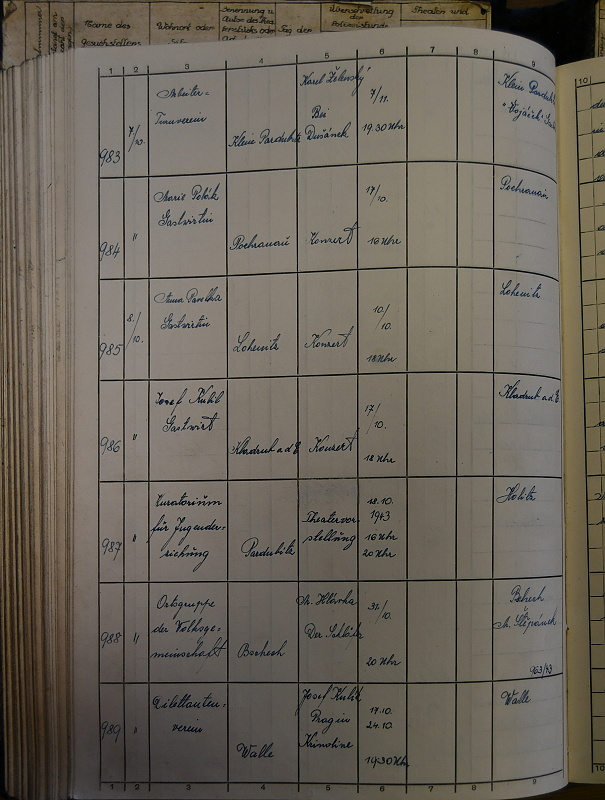 Name des
Gesuchstellers
Wohnort oder
Benennung u.
Autor des
oder
Tag der
Überschreitung
der
Polizeistunde
Theater und
1 2 3 4 5 6 7 8 9
10
983
7/10.
Turnverein
Klein Pardubitz
Karel Želenský
Bei
Dušánek
7/11.
19.30 Uhr
Klein Pardub
"Vojáček"
984
"
Marie Polák
Gastwirtin
Pochranau
Konzert
17/10.
16 Uhr
Pochranau
985
8./10.
Anna Pavelka
Gastwirtin
Lohenitz
Konzert
10/10.
18 Uhr
Lohenitz
986
"
Josef Kubil
Gastwirt
Kladrub a.d.E
Konzert
17/10.
18 Uhr
Kladrub a.d.E
987
"
Kuratorium
für Jugender=
ziehung
Pardubitz
Theatervor
stellung
18.10.
1943
16 Uhr
20 Uhr
Holitz
988
"
Ortsgruppe
der Volksge=
meinschaft
Bochech
M. Hlávka
Der
31/10.
20 Uhr
M. Štěpánek
963/43
989
"
Dilettanten=
verein
Walle
Josef Kubík
Pragin
Krinoline
17.10.
24.10.
19.30 Uhr
Walle
1 2 3 4 5 6 7 8 9
10